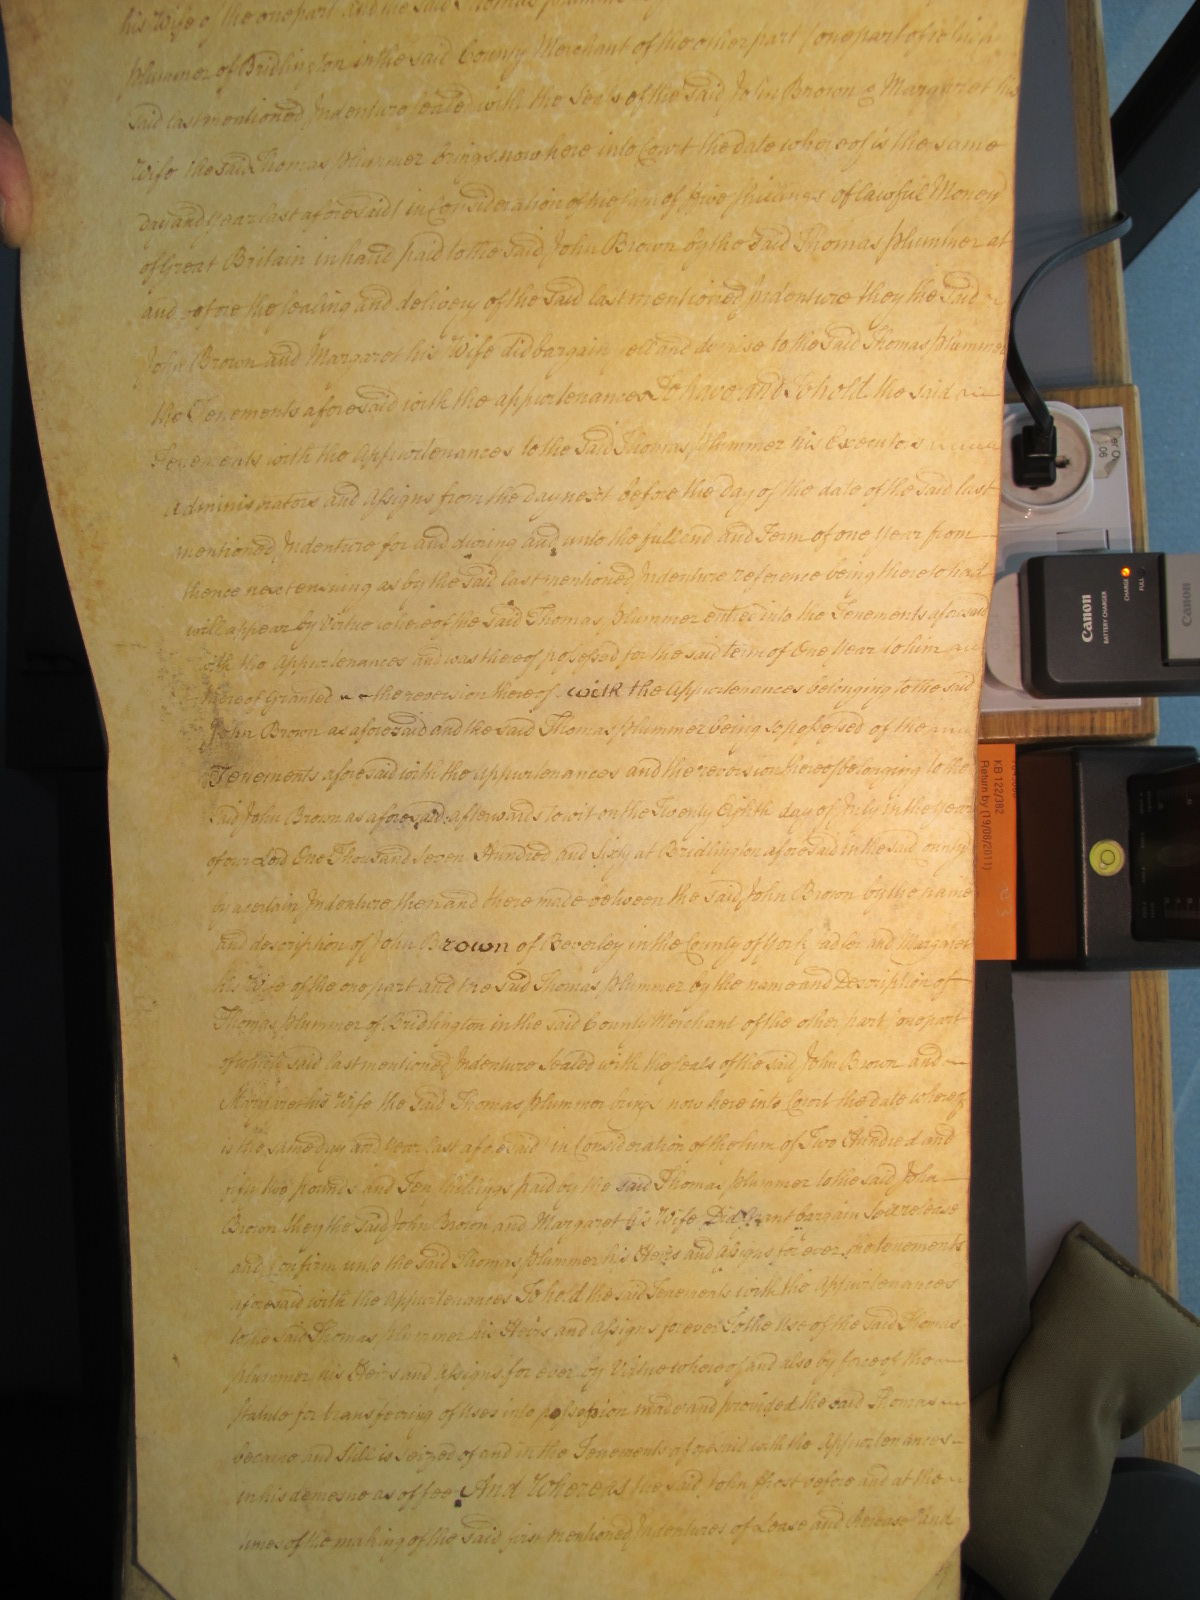 his Wife of the one part and the said Thomas plummer
plummer of Bridlington in the said County Merchant of the other part (one part of which
said last mentioned Indenture sealed with the Seals of the said John Brown & Margaret his
Wife the said Thomas plummer brings now here into Court the date whereof is the same
day and year last aforesaid) in Consideration of the sum of five shillings of lawful Money
of Great Britain in hand paid to the said John Brown by the said Thomas plummer at
and before the sealing and delivery of the said last mentioned Indenture they the said
John Brown and Margaret his Wife did bargain sell and demise to the said Thomas plummer
the Tenements aforesaid with the appurtenances To have and To hold the said
Tenements with the Appurtenances to the said Thomas plummer his Executors
administrators and assigns from the day next before the day of the date of the said last
mentioned Indenture for and during and unto the full end and Term of one year from
thence next ensuing as by the said last mentioned Indenture reference being thereto had
will appear by Virtue whereof the said Thomas plummer entred into the Tenements aforesaid
with the appurtenances and was thereof possessed for the said term of One year to him
thereof Granted the reversion thereof with the Appurtenances belonging to the said
John Brown as aforesaid and the said Thomas plummer being so possessed of the
Tenements aforesaid with the appurtenances and the reversion thereof belonging to the
said John Brown as aforesaid afterwards to wit on the Twenty Eighth day of July in the year
of our Lord One Thousand Seven Hundred and Sixty at Bridlington aforesaid in the said County
by a certain Indenture then and there made between the said John Brown by the name
and description of John Brown of Beverley in the County of York Sadler and Margaret
his Wife of the one part and the said Thomas plummer by the name and Description of
Thomas plummer of Bridlington in the said County Merchant of the other part (one part
of which said last mentioned Indenture sealed with the seals of the said John Brown and
Margaret his Wife the said Thomas plummer brings now here into Court the date whereof
is the same day and year last aforesaid) in Consideration of the sum of Two Hundred and
fifty two pounds and Ten shillings paid by the said Thomas plummer to the said John
Brown they the said John Brown and Margaret his Wife Did Grant bargain sell release
and confirm unto the said Thomas plummer his Heirs and assigns for ever the tenements
aforesaid with the appurtenances To hold the said Tenements with the appurtenances
to the said Thomas plummer his Heirs and assigns for ever To the Use of the said Thomas
plummer his Heirs and assigns for ever by Virtue whereof and also by force of the
statute for transferring of uses into possession made and provided the said Thomas
became and still is seized of and in the Tenements aforesaid with the appurtenances
in his demesne as of fee And Whereas the said John Frost before and at the
times of the making of the said first mentioned Indentures of Lease and Release
Canon
BATTERY CHARGER
CHARGE
FULL
Canon
KB 122/382
Return by (19/08/2011)